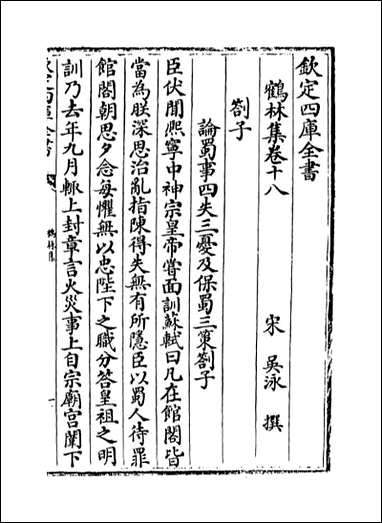 欽定四庫全書
鶴林集卷十八
宋 吳泳 撰
劄子
論蜀事四失三憂及保蜀三策劄子
臣伏聞熙寧中神宗皇帝嘗面訓蘇軾曰凡在館閣皆
當為朕深思治亂指陳得失無有所隱臣以蜀人待罪
館閣朝思夕念每懼無以忠陛下之職分答皇祖之明
訓乃去年九月輒上封章言火災事上自宗廟宮闈下
鶴林集
一